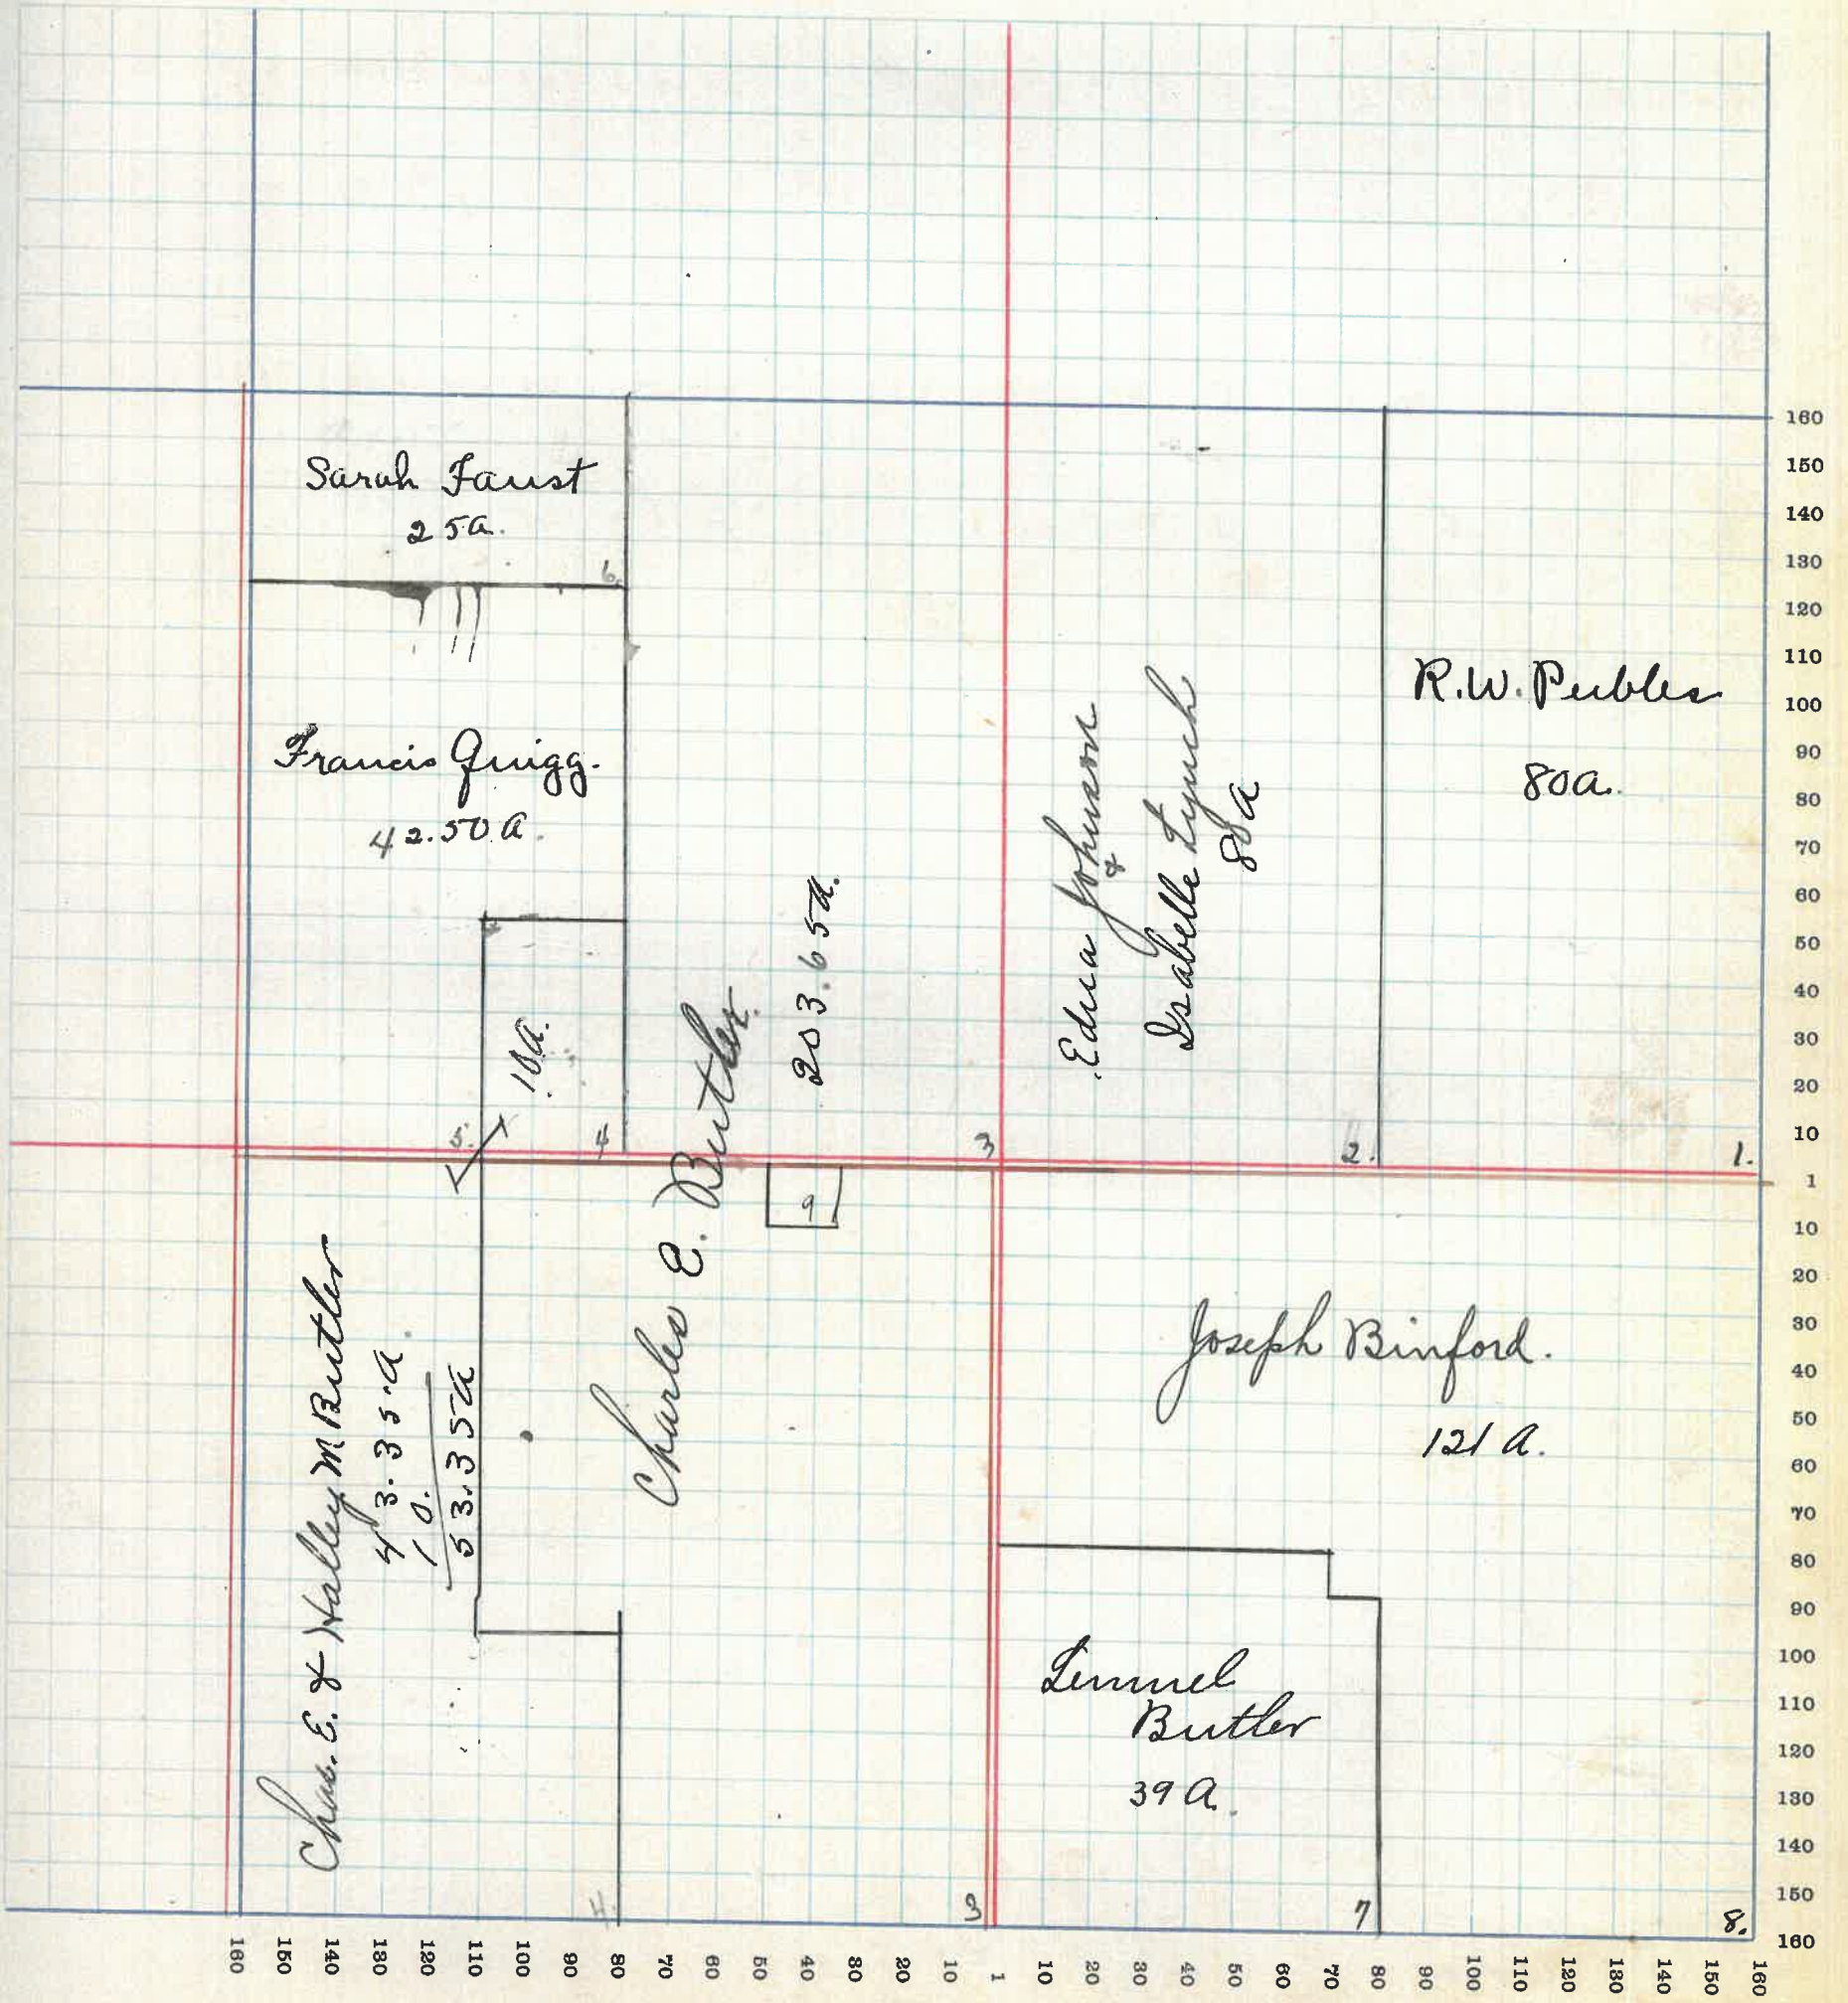 Sarah Faust
25a.
6.
Francis Quigg.
42.50 a.
10a.
5.
4
Charles E. Butler.
203.65a.
3
Edna Johnson
&
Isabelle Lynch
80a
2.
R.W. Peebles
80a.
1.
9
Chas. E. & Halley M Butler
43.35.a.
10.
53.35a
4.
3
Joseph Binford.
121 A.
Lemuel
Butler
39 A.
7
8.
160
150
140
130
120
110
100
90
80
70
60
50
40
30
20
10
1
10
20
30
40
50
60
70
80
90
100
110
120
130
140
150
160
160 150 140 130 120 110 100 90 80 70 60 50 40 30 20 10 1 10 20 30 40 50 60 70 80 90 100 110 120 130 140 150 160